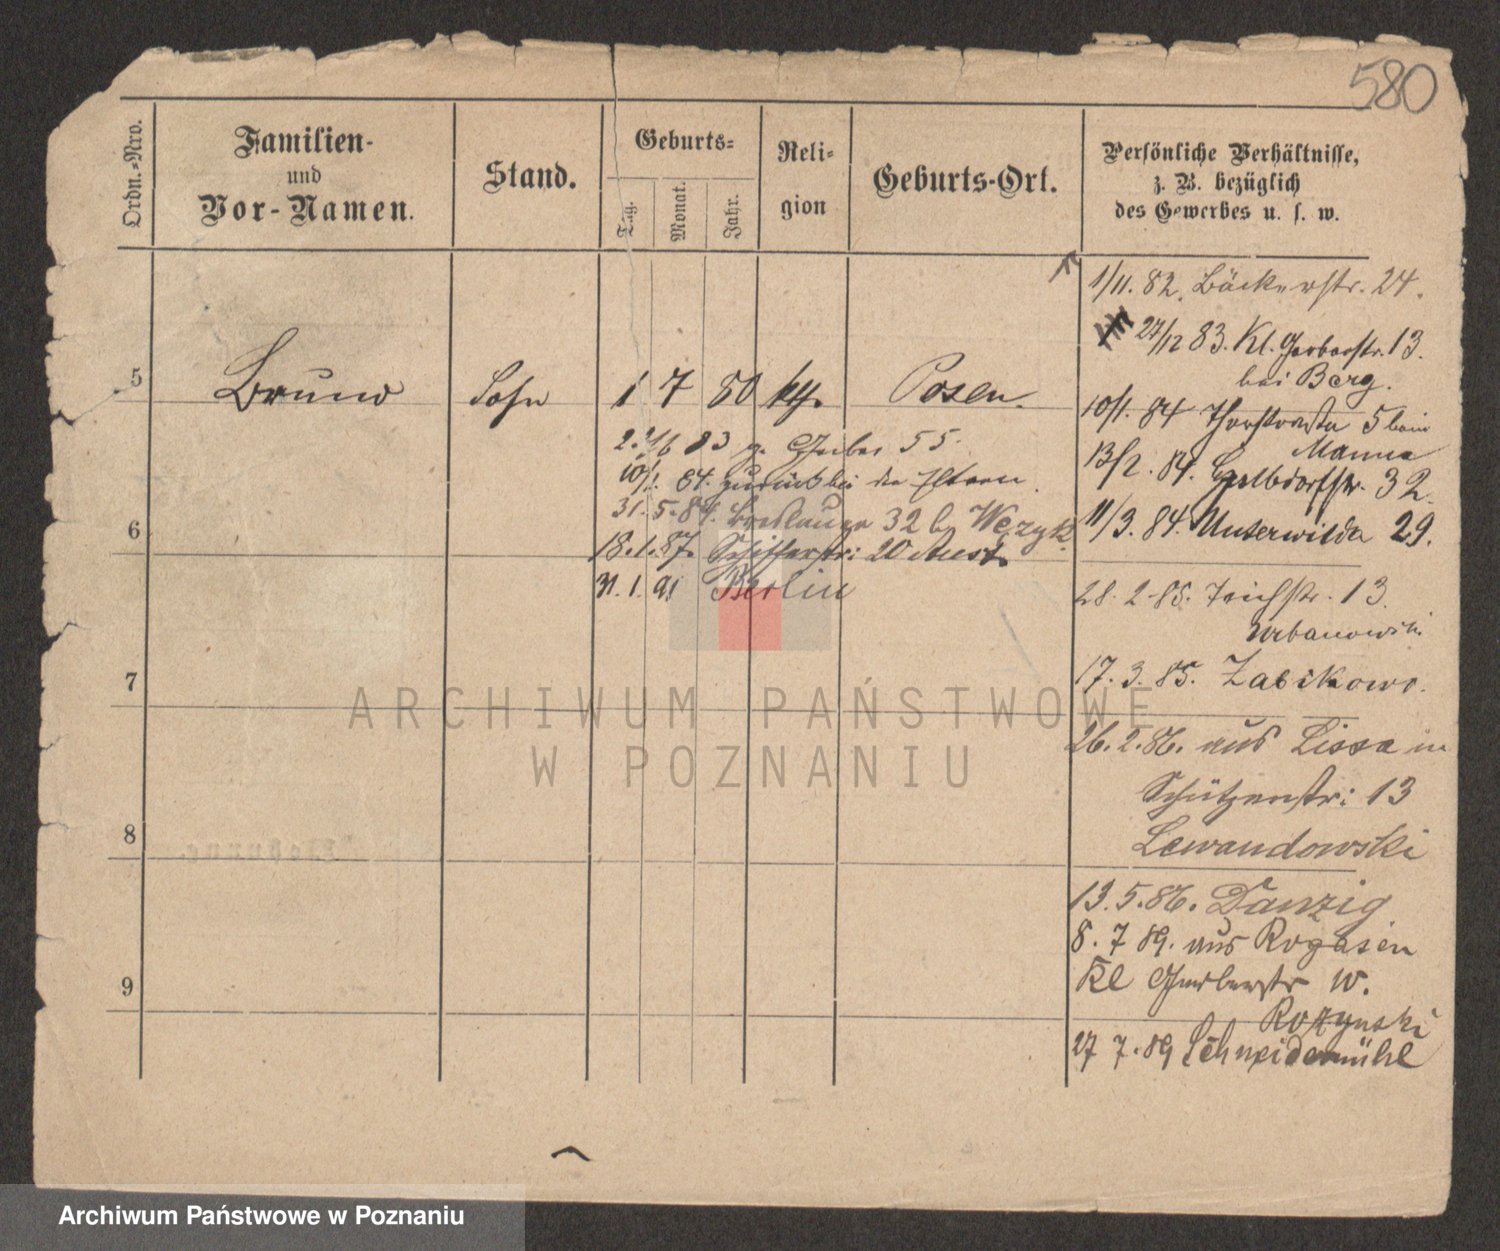 580
Ordn.-Nro.
Familien-
und
Vor-Namen.
Stand.
Geburts-
Tag.
Monat.
Jahr.
Reli-
gion
Geburts-Ort.
Persönliche Verhältnisse,
z. B. bezüglich
des Gewerbes u. s. w.
5
Bruno
Sohn
1 7 80 kth.
Posen.
83 55
10/1. 84. zurück bei den Eltern.
31.5.84. Breslauer 32 b. Węzyk.
18.1.87. Schifferstr: 20 Aust
31.1.91 Berlin
1/11. 82. Bäckerstr. 24.
27/12 83. Kl. Gerberstr. 13.
bei Berg.
10/1. 84 5 beim
Manna
13/2. 84. 32.
11/3. 84. Unterwilda 29.
28.2.85. Teichstr. 13.
Urbanowski
17.3.85. Zabikowo.
26.2.86. aus Lissa in
Schützenstr: 13
Lewandowski
13.5.86. Danzig
8.7 89. aus Rogasen
Kl Gerberstr W.
Rozynski
27 7.89 Schneidemühl
6
7
8
9
ARCHIWUM PAŃSTWOWE
W POZNANIU
Archiwum Państwowe w Poznaniu